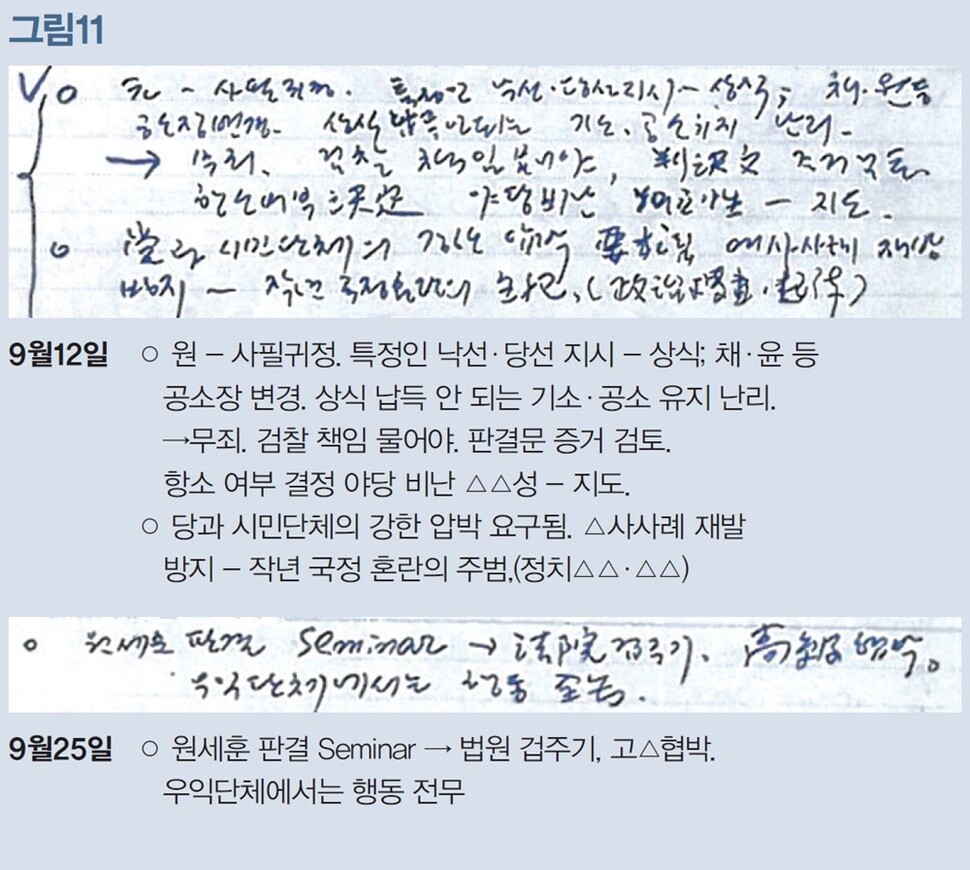 그림11
V ㅇ 원 - 사필귀정. 특정인 낙선·당선 지시 - 상식; 채·윤 등
공소장 변경. 상식 납득 안 되는 기소·공소 유지 난리.
→ 무죄. 검찰 책임 물어야. 判決文 증거 검토.
항소 여부 決定 야당 비난 - 지도.
ㅇ 堂과 시민단체의 강한 압박 要求됨 사례 재발
방지 - 작년 국정혼란의 주범, (政治
9월12일 ○ 원 – 사필귀정. 특정인 낙선·당선 지시 – 상식; 채·윤 등
공소장 변경. 상식 납득 안 되는 기소·공소 유지 난리.
→무죄. 검찰 책임 물어야. 판결문 증거 검토.
항소 여부 결정 야당 비난 △△성 – 지도.
○ 당과 시민단체의 강한 압박 요구됨. △사사례 재발
방지 – 작년 국정 혼란의 주범,(정치△△·△△)
ㅇ 원세훈 판결 Seminar → 法院 겁주기, 협박.
우익단체에서는 행동 全無.
9월25일 ○ 원세훈 판결 Seminar → 법원 겁주기, 고△협박.
우익단체에서는 행동 전무